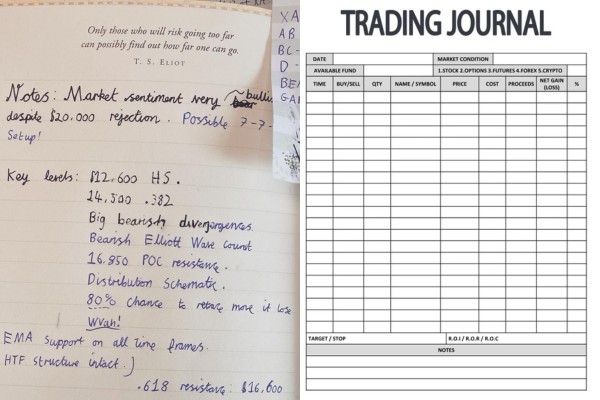 Only those who will risk going too far
can possibly find out how far one can go.
T. S. ELIOT
Notes: Market sentiment very bullis
despite $20.000 rejection. Possible 7-7-
Setup!
Key levels: $12.600 HS.
14,500 .382
Big bearish divergences.
Bearish Elliott Wave Count
16.850 POC resistance.
Distribution Schematic.
80% chance to retrace move it lose
EMA support on all time frames.
HTF structure intact.)
.618 resistance: $16,600
XA
AB
BC-
D -
BEA
GA
TRADING JOURNAL
DATE MARKET CONDITION
AVAILABLE FUND 1.STOCK 2.OPTIONS 3.FUTURES 4.FOREX 5.CRYPTO
TIME BUY/SELL QTY NAME / SYMBOL PRICE COST PROCEEDS NET GAIN (LOSS) %
TARGET / STOP R.O.I / R.O.R / R.O.C
NOTES